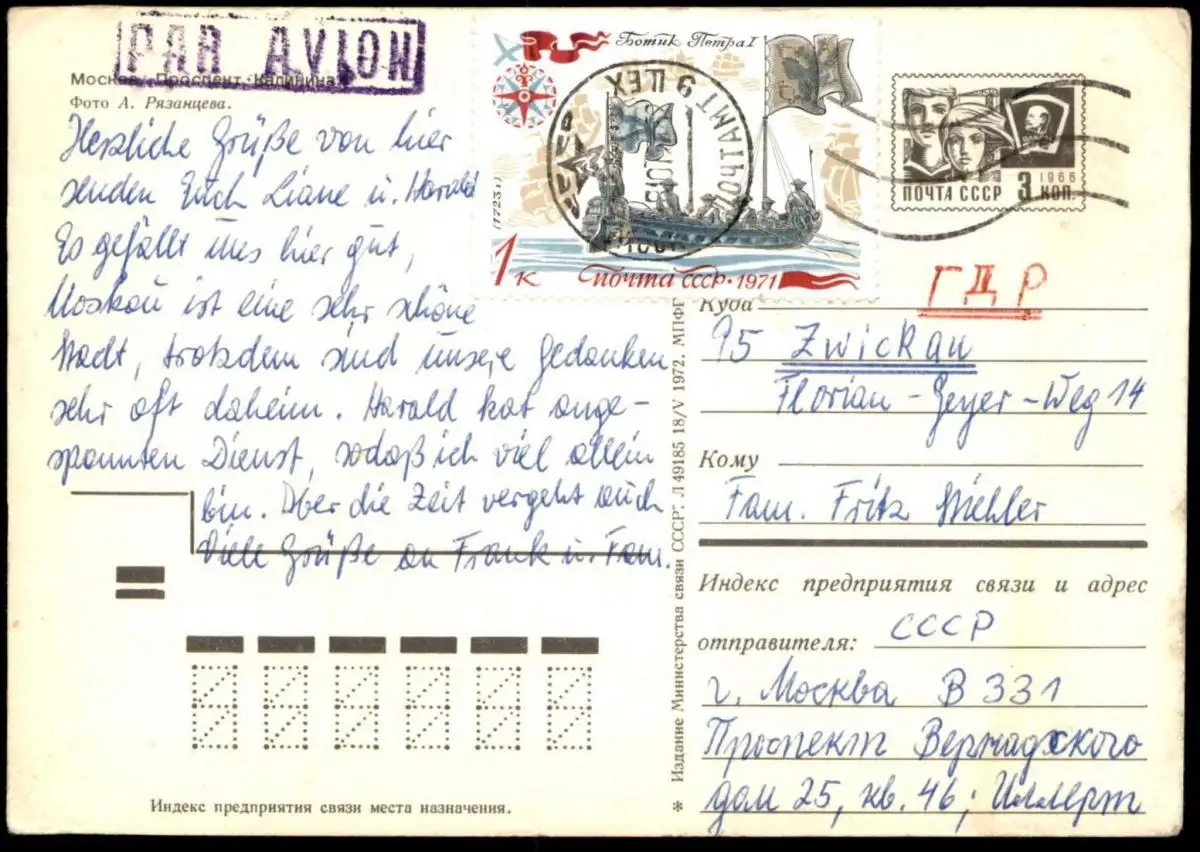 PAR AVION
Москва. Проспект Калинина.
Фото А. Рязанцева.
Herzliche Grüße von hier
senden Euch Liane u. Harald
Es gefällt uns hier gut,
Moskau ist eine sehr schöne
Stadt, trotzdem sind unsere Gedanken
sehr oft daheim. Harald hat ange-
spannten Dienst, sodaß ich viel allein
bin. Aber die Zeit vergeht auch
Viele Grüße an Frank u. Fam.
Индекс предприятия связи места назначения.
Ботик Петра I
(1723 г.)
1 к Почта СССР · 1971
ПОЧТАМТ 9 ЦЕХ
1966
ПОЧТА СССР 3 КОП.
ГДР
Куда
95 Zwickau
Florian-Geyer-Weg 14
Кому
Fam. Fritz
Индекс предприятия связи и адрес
отправителя: СССР
г. Москва В 331
Проспект Вернадского
дом 25, кв. 46;
* Издание Министерства связи СССР. Л 49185 18/V 1972. МПФГ